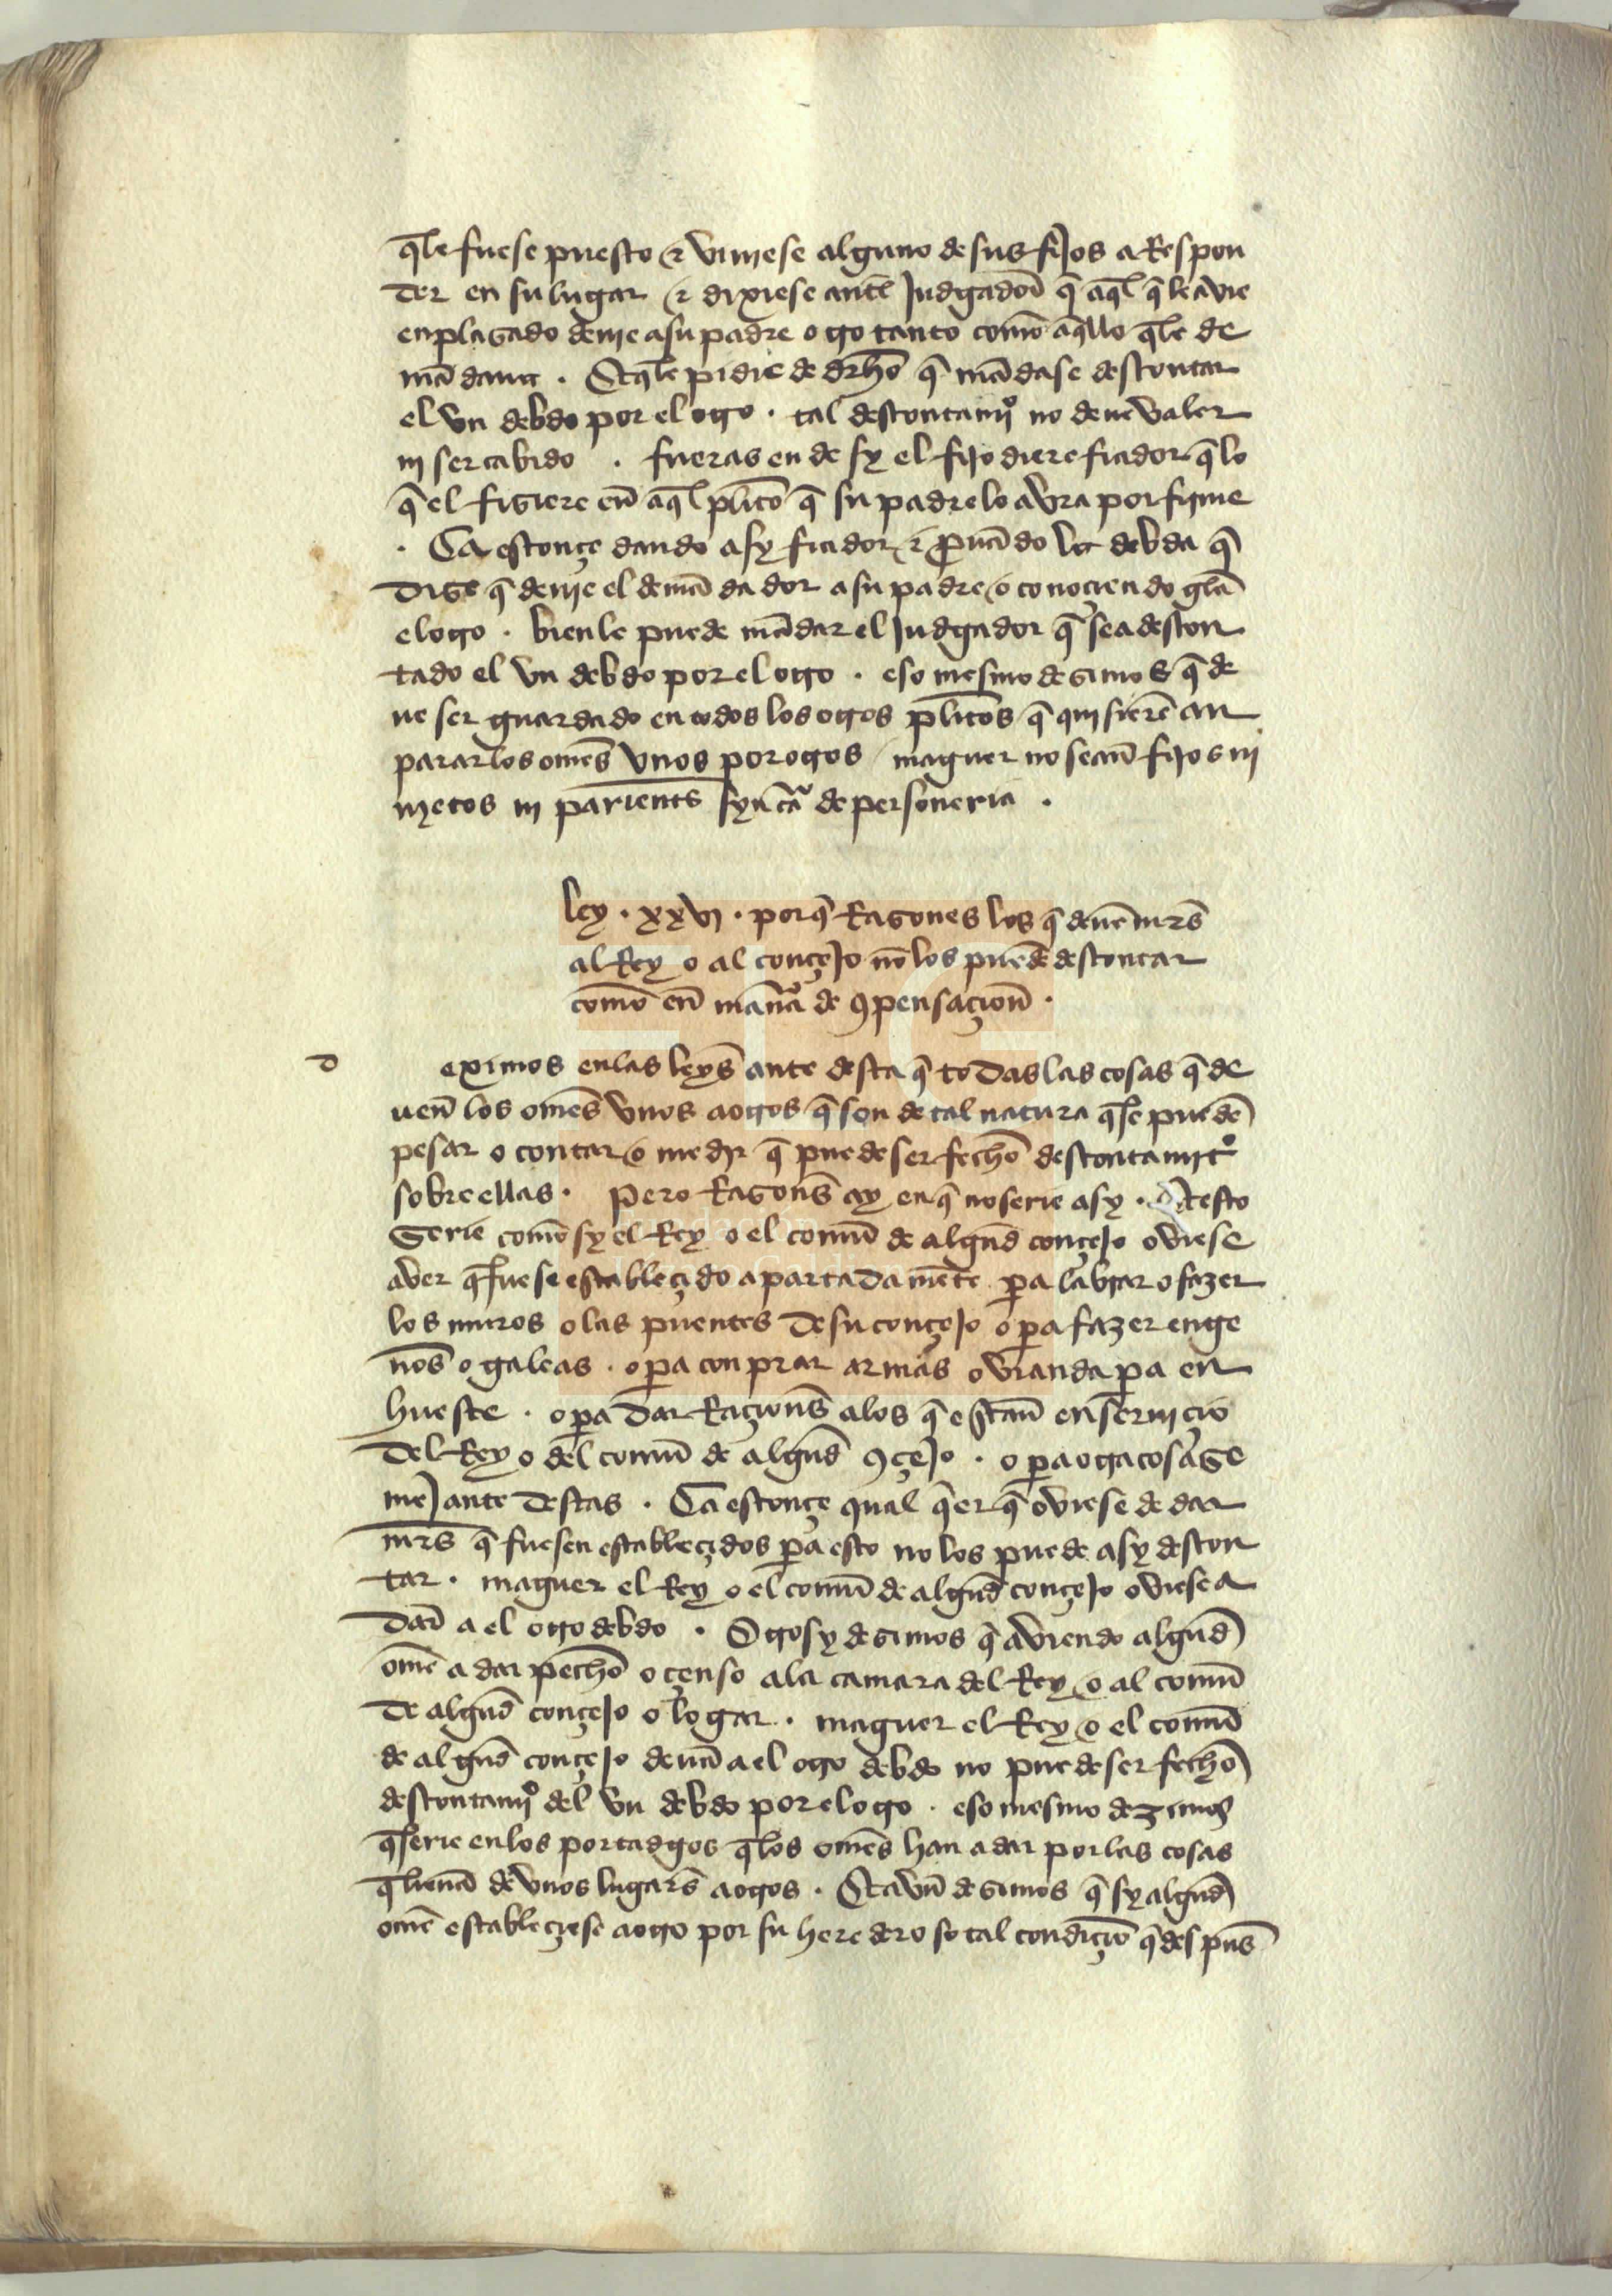 q̄le fuese puesto & viniese alguno de sus fijos a Respon
der en su lugar & dixiese antel Judgador q̄ aq̄l q̄ le avie
enplasado devie a su padre otro tanto como aq̄llo q̄le de
mādava . Et q̄le pidie de drho q̄ mādase descontar
el vn debdo por el otro . tal descontamjº no deue valer
nj ser cabido . fueras ende sy el fijo diere fiador q̄ lo
q̄ el fisiere en̄ aq̄l pl̄ito q̄ su padre lo avra por firme
. Ca estonçe dando asy fiador & prouādo la debda q̄
dise q̄ devie el demādador a su padre o conoçiendo gela
el otro . bien le puede mādar el Judgador q̄ sea descon
tado el vn debdo por el otro . eso mesmo desimos q̄ de
ue ser guardado en todos los otros pl̄itos q̄ qujsierē an
parar los omēs vnos por otros maguer no sean̄ fijos nj
njetos nj parientes syn cāª de personeria .
ley . xxvj . por q̄ Rasones los q̄ deuē mrs̄
al Rey o al conçeJo nō los puedē descontar
como en̄ manāª de 9pensaçion̄ .
d eximos en las leyes ante desta q̄ todas las cosas q̄ de
uen̄ los omēs vnos a otros q̄ son de tal natura q̄se puedē
pesar o contar o medir q̄ puede ser fecho descontamjtº
sobre ellas . Pero Rasones ay en q̄ no serie asy . Et esto
serie como sy el Rey o el comū de algūd conçeJo oviese
aver q̄ fuese establesçido apartada mēte pa labrar o fazer
los muros o las puentes de su conçeJo o pa fazer enge
nos o galeas . o pa conprar armas o vianda pa en
hueste . o pa dar Raçiones a los q̄ estan̄ en serujçio
del Rey o del comū de algūd 9çeJo . o pa otra cosa se
meJante destas . Ca estonçe qual q̄er q̄ oviese de dar
mrs̄ q̄ fuesen establesçidos pa esto no los puede asy descon
tar . maguer el Rey o el comū de algūd conçeJo oviese a
dar a el otro debdo . Otrosy desimos q̄ aviendo algūd
omē a dar pecho o çenso a la camara del Rey o al comū
de algūd conçeJo o logar . maguer el Rey o el comū
de algūd conçeJo deuā a el otro debdo no puede ser fecho
descontamjº del vn debdo por el otro . eso mesmo dezimos
q̄ serie en los portadgos q̄ los omēs han a dar por las cosas
q̄ lieuā de vnos lugares a otros . Et avn̄ desimos q̄ sy algūd
omē establesçiese a otro por su heredero so tal condiçiō q̄ despues